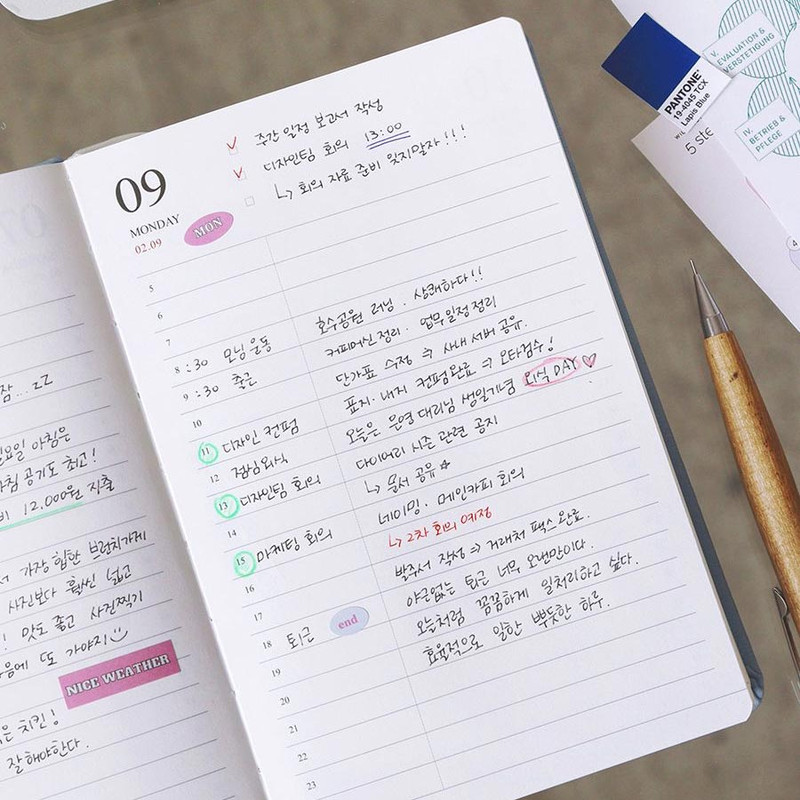 09
MONDAY
02.09
MON
주간 일정 보고서 작성
디자인팀 회의 13:00
↳ 회의 자료 준비 잊지말자!!!
5
6
7
8 :30 모닝 운동
호수공원 러닝. 상쾌하다!!
9 :30 출근
커피머신 정리. 업무일정 정리
10
단가표 수정 ⇒ 사내 서버 공유.
11 디자인 컨펌
표지·내지 컨펌완료 ⇒ 오타검수!
12 점심외식
오늘은 은영 대리님 생일기념 외식 DAY ♡
13 디자인팀 회의
다이어리 시즌 관련 공지
14
↳ 문서 공유 ☆
15 마케팅 회의
네이밍. 메인카피 회의
16
↳ 2차 회의 예정
17
발주서 작성 ⇒ 거래처 팩스 완료.
18 퇴근 end
야근없는 퇴근 너무 오랜만이다.
19
오늘처럼 꼼꼼하게 일처리하고 싶다.
20
효율적으로 일한 뿌듯한 하루.
21
22
23
잠...zZ
일요일 아침은
공기도 최고!
비 12,000원 지출
가장 힙한 브런치가게
사진보다 훨씬 넓고
! 맛도 좋고 사진찍기
음에 또 가야지
NICE WEATHER
은 치킨!
잘 해야한다.
PANTONE®
19-4045 TCX
Lapis Blue
5 ste
V.
EVALUATION &
VERSTETIGUNG
IV.
BETRIEB &
PFLEGE
4